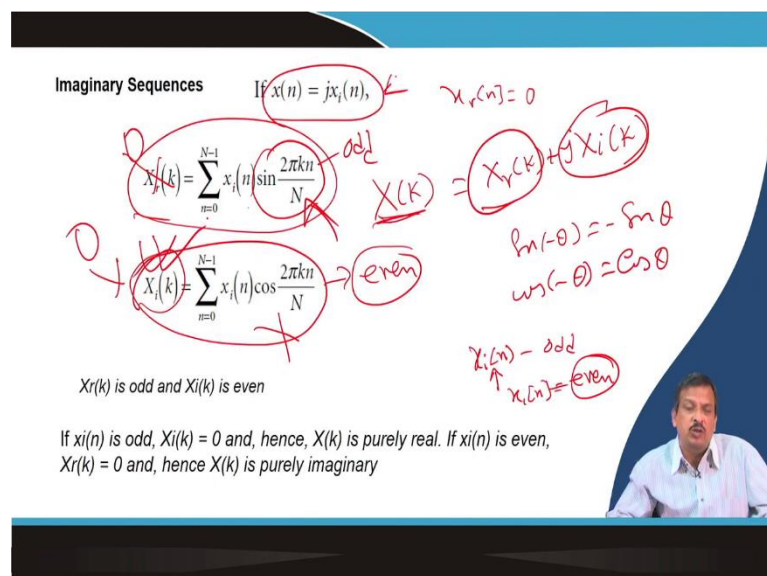 Imaginary Sequences If x(n) = jx_i(n), x_r[n] = 0
X_r(k) = \sum_{n=0}^{N-1} x_i(n) sin \frac{2πkn}{N} odd
X(k) = X_r(k) + jX_i(k)
0
Sin(-θ) = -Sinθ
Cos(-θ) = Cosθ
0
X_i(k) = \sum_{n=0}^{N-1} x_i(n) cos \frac{2πkn}{N} → even
x_i(n) - odd
x_i[n] = even
Xr(k) is odd and Xi(k) is even
If xi(n) is odd, Xi(k) = 0 and, hence, X(k) is purely real. If xi(n) is even,
Xr(k) = 0 and, hence X(k) is purely imaginary